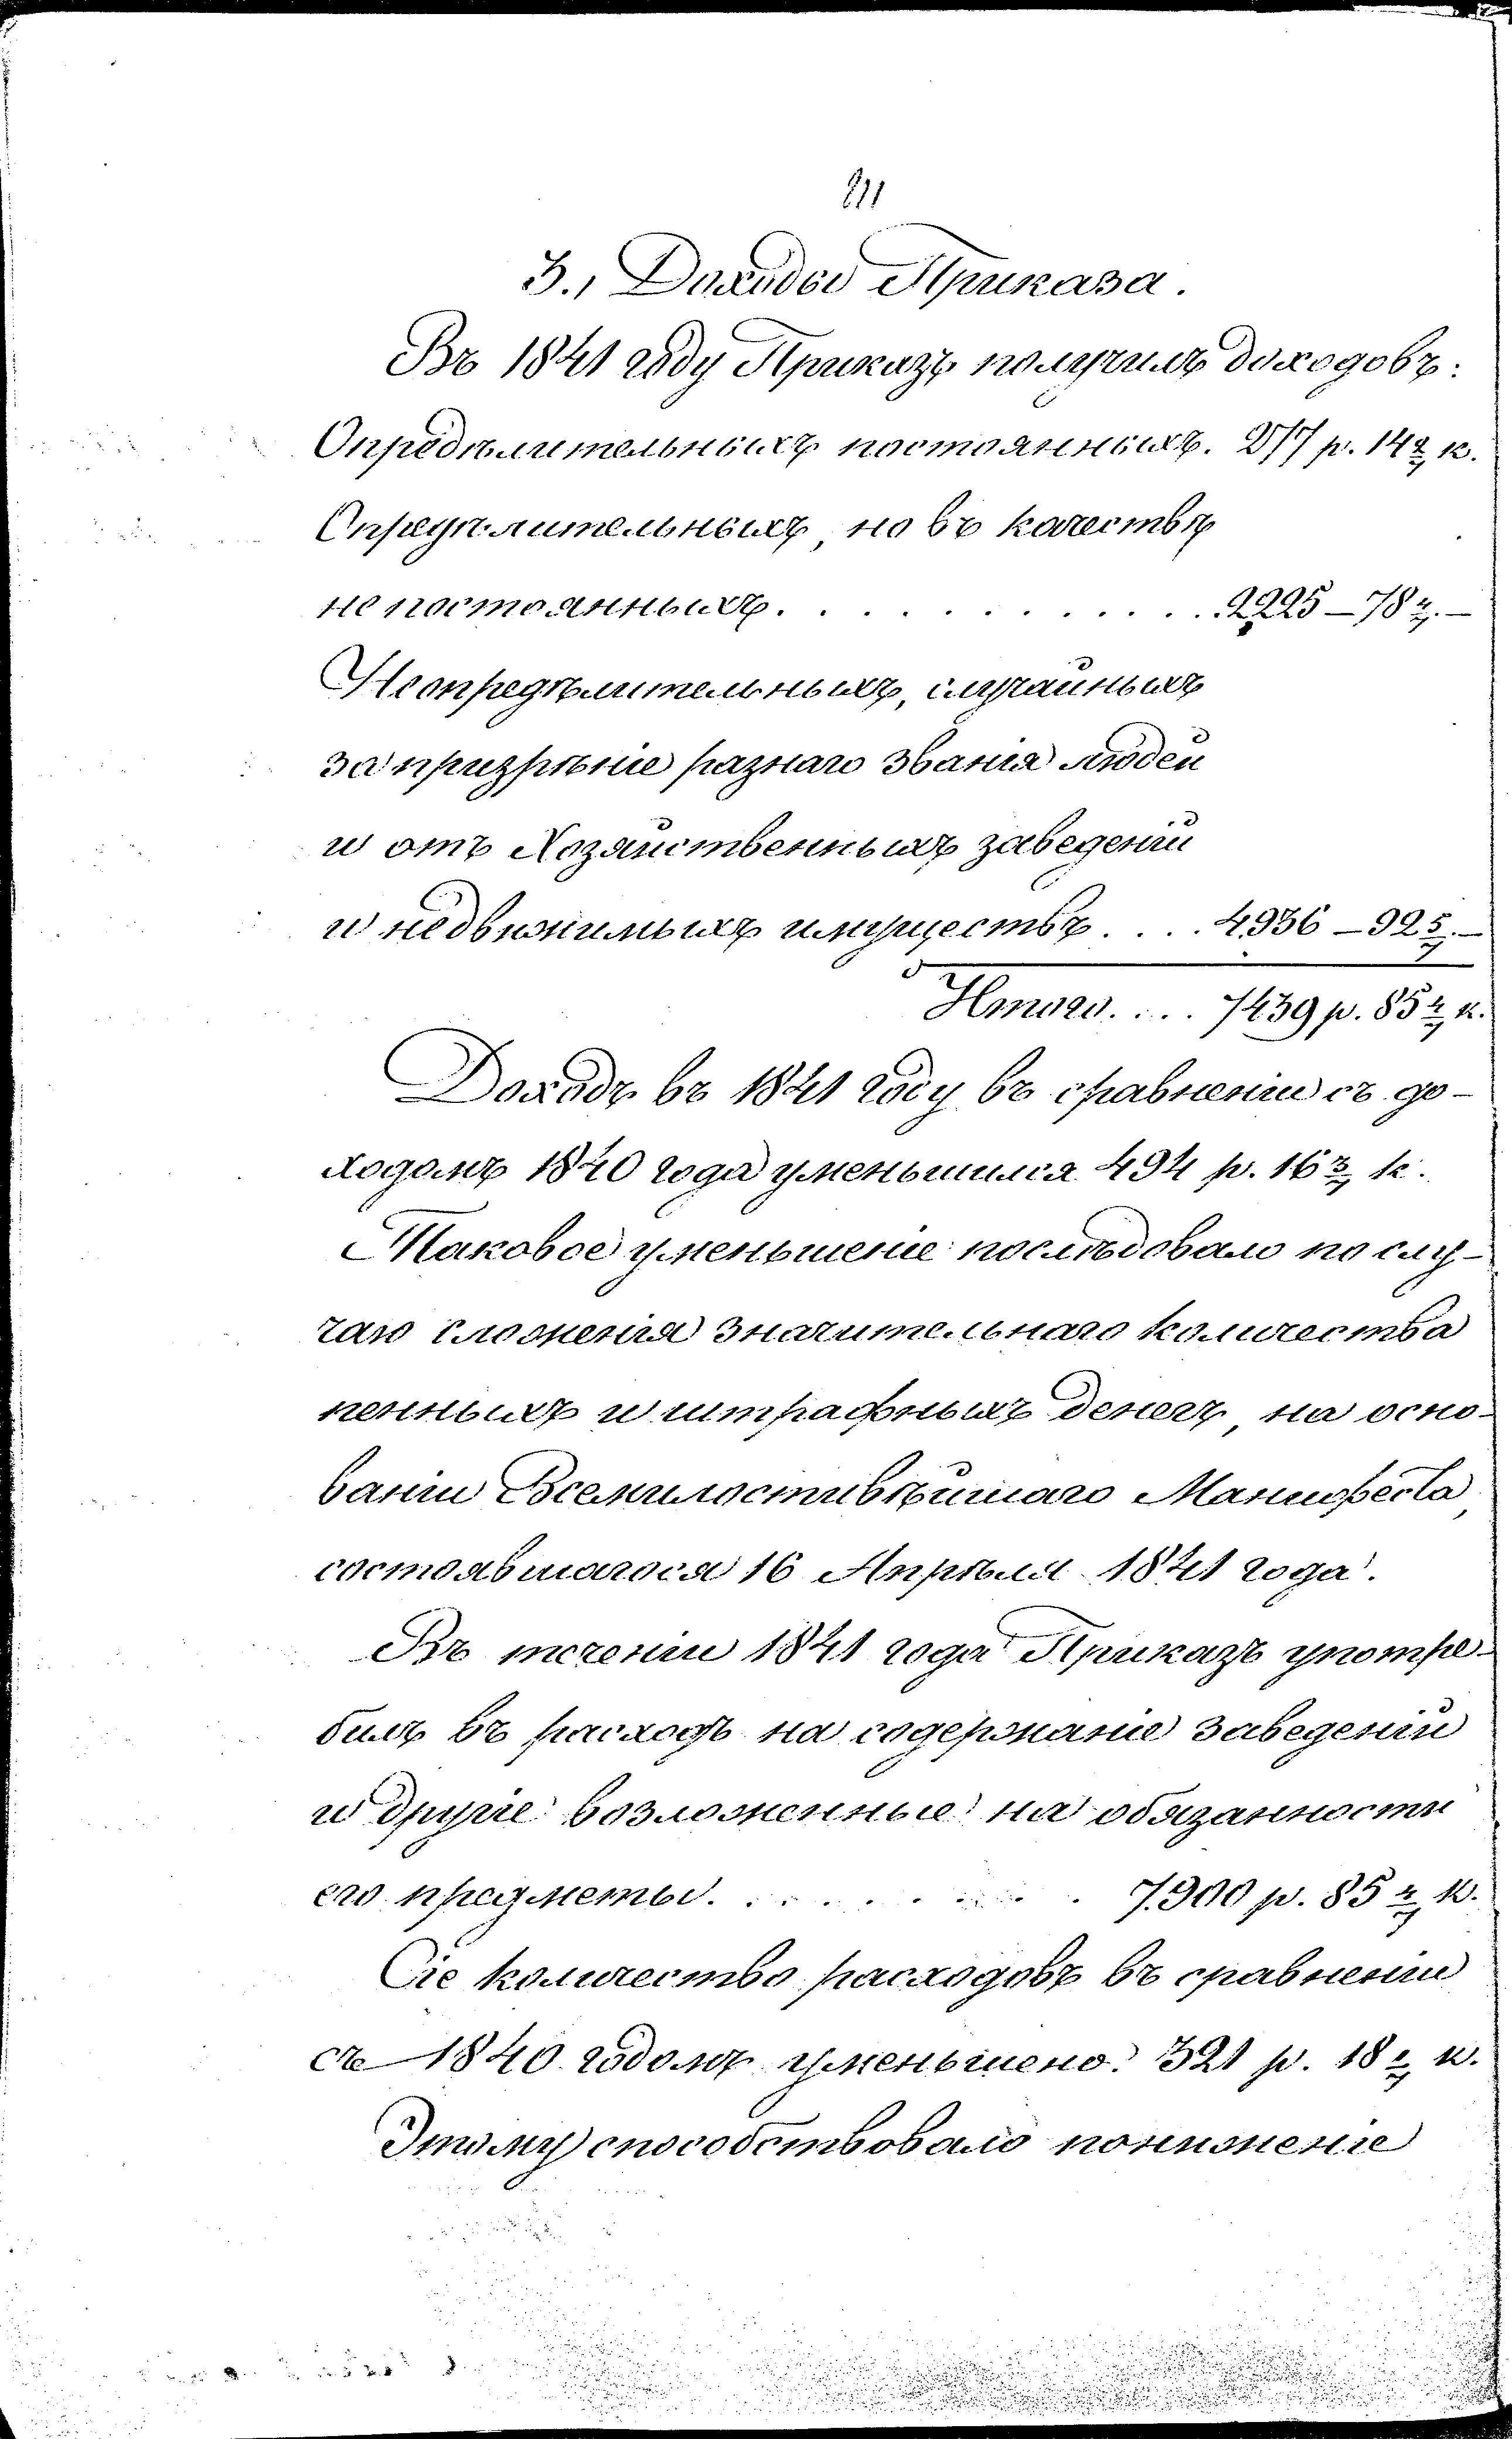 211
3., Доходы Приказа.
Въ 1841 году Приказъ получилъ доходовъ:
Опредѣлительныхъ постоянныхъ. 277 р. 14 2/7 к.
Опредѣлительныхъ, но въ качествѣ
не постоянныхъ. . . . . . . . . . . . 2225 – 78 4/7. –
Неопредѣлительныхъ, случайныхъ
за призрѣніе разнаго званія людей
и отъ Хозяйственныхъ заведеній
и недвижимыхъ имуществъ. . . . 4936 – 92 5/7. –
Итого. . . . 7439 р. 85 4/7 к.
Доходъ въ 1841 году въ сравненіи съ до-
ходомъ 1840 года уменьшился 494 р. 16 3/7 к.
Таковое уменьшеніе послѣдовало по слу-
чаю сложенія значительнаго количества
пенныхъ и штрафныхъ денегъ, на осно-
ваніи Всемилостивѣйшаго Манифеста,
состоявшагося 16 Апрѣля 1841 года.
Въ теченіи 1841 года Приказъ употре-
билъ въ расходъ на содержаніе заведеній
и другіе возложенные на обязанности
его предметы. . . . . . . . . . 7.900 р. 85 4/7 к.
Сіе количество расходовъ въ сравненіи
съ 1840 годомъ уменьшено: 321 р. 18 к.
Этому способствовало пониженіе